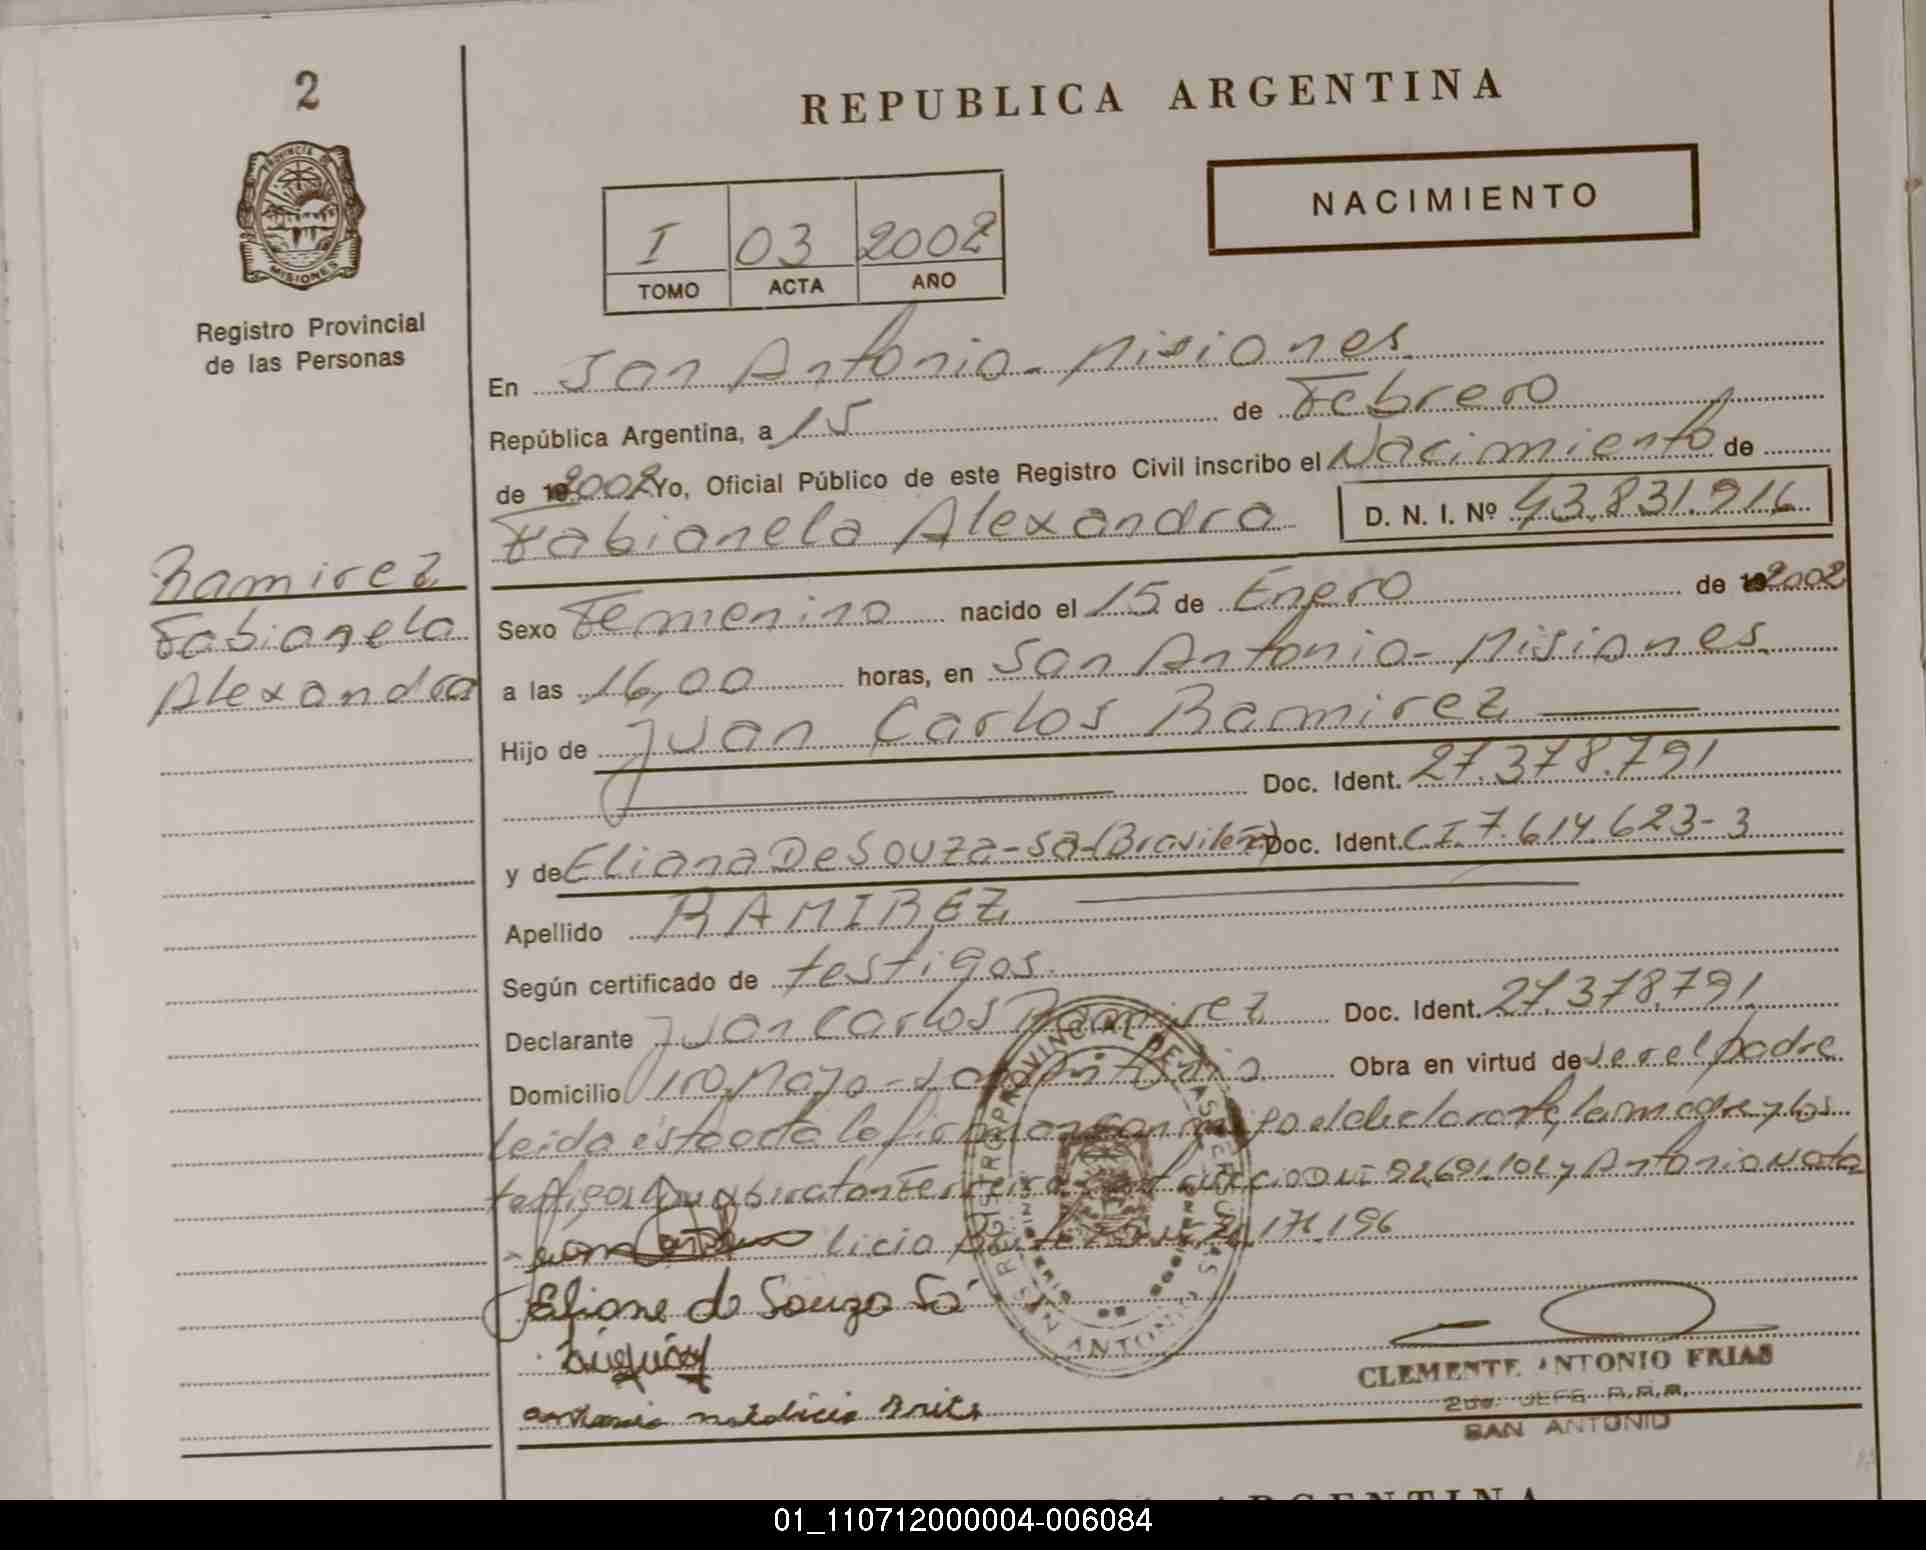 2
REPUBLICA ARGENTINA
PROVINCIA DE
MISIONES
NACIMIENTO
I 03 2002
TOMO ACTA AÑO
Registro Provincial
de las Personas
En San Antonio - Misiones
República Argentina, a 15 de Febrero
de 19 2002 Yo, Oficial Público de este Registro Civil inscribo el Nacimiento de
Fabianela Alexandra D. N. I. Nº 43.831.916
Ramirez
Fabianela
Alexandra
Sexo Femenino nacido el 15 de Enero de 19 2002
a las 16,00 horas, en San Antonio - Misiones
Hijo de Juan Carlos Ramirez
Doc. Ident. 27.378.791
y de Eliana De Souza - Sa - (Brasileña) Doc. Ident. C.I. 7.614.623-3
Apellido RAMIREZ
Según certificado de testigos.
Declarante Juan Carlos Ramirez Doc. Ident. 27.378.791
Domicilio 1ro Mayo - San Antonio Obra en virtud de ser el padre
leida ésta acta la firman conmigo el declarante, la madre y los
testigos Ferreira DNI 92.691.102 y Antonio Nata
licio 171.196
Eliane de Souza Sá
antonio natalicio
REGISTRO PROVINCIAL DE LAS PERSONAS
MISIONES
SAN ANTONIO
CLEMENTE ANTONIO FRIAS
2do. JEFE R.P.P.
SAN ANTONIO
ARGENTINA
01_110712000004-006084